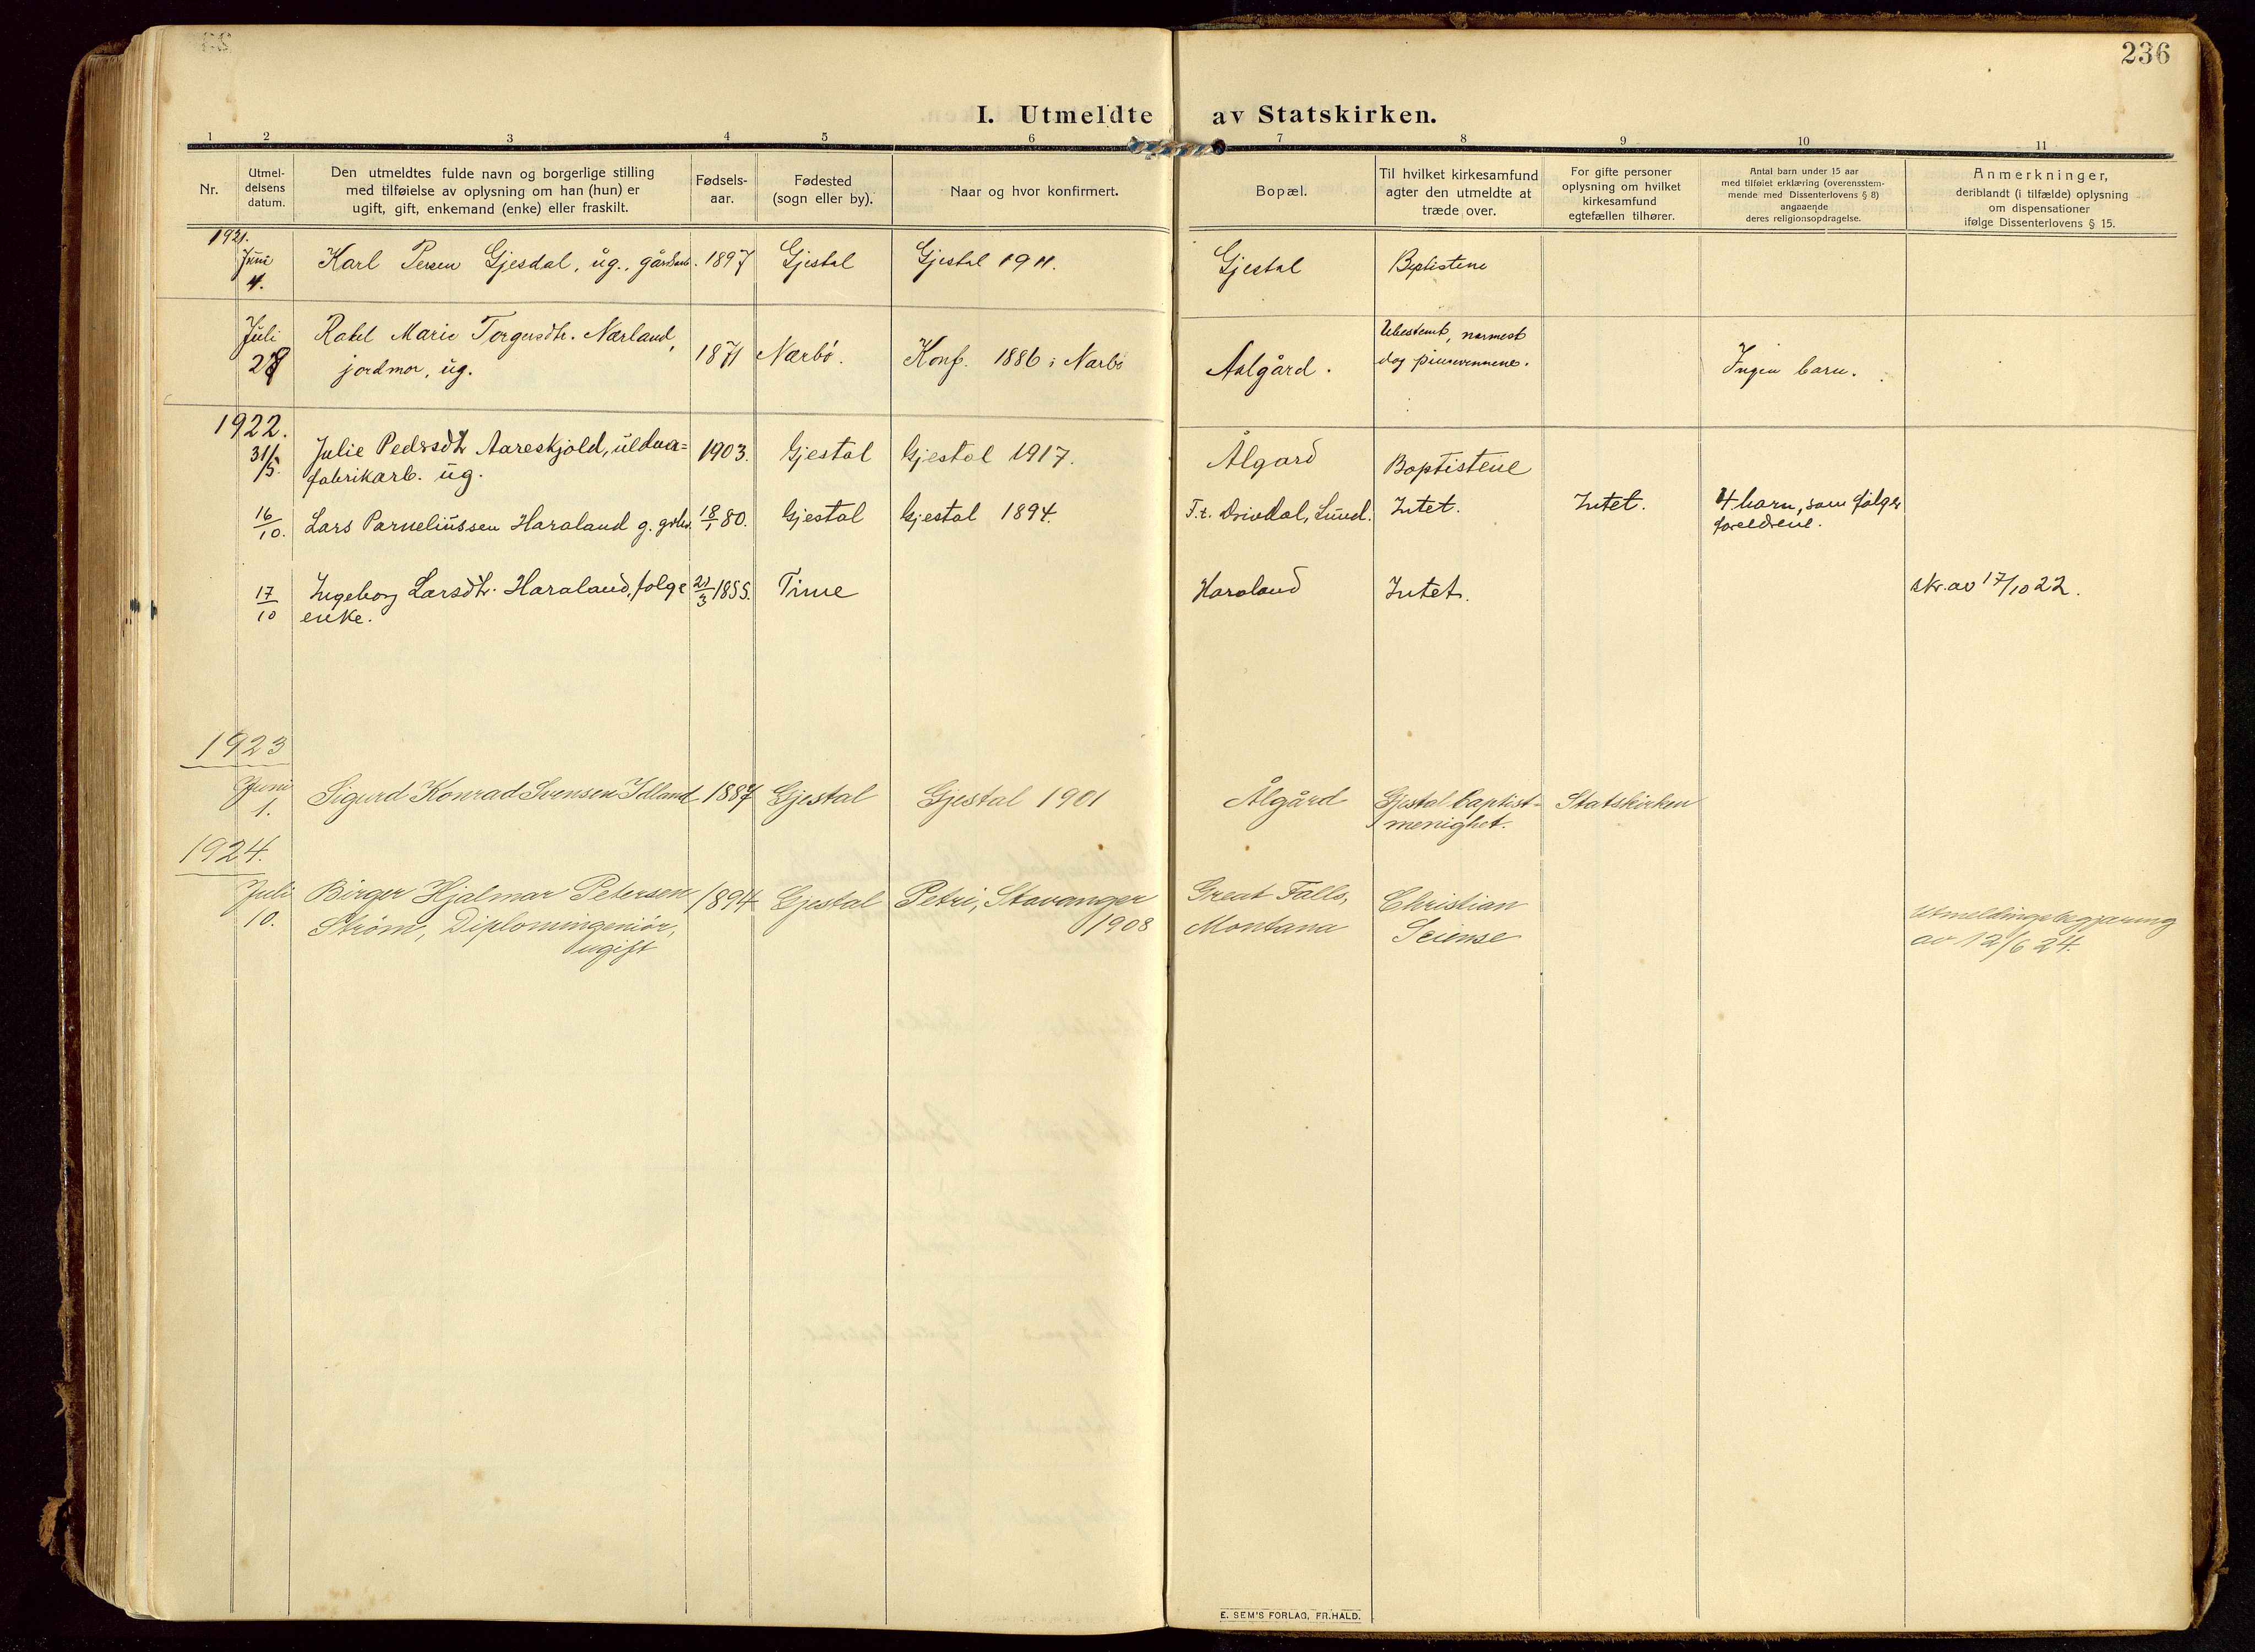 236
I. Utmeldte av Statskirken.
1 2 3 4 5 6 7 8 9 10 11
Nr.
Utmel-
delsens
datum.
Den utmeldtes fulde navn og borgerlige stilling
med tilføielse av oplysning om han (hun) er
ugift, gift, enkemand (enke) eller fraskilt.
Fødsels-
aar.
Fødested
(sogn eller by).
Naar og hvor konfirmert.
Bopæl.
Til hvilket kirkesamfund
agter den utmeldte at
træde over.
For gifte personer
oplysning om hvilket
kirkesamfund
egtefællen tilhører.
Antal barn under 15 aar
med tilføiet erklæring (overensstem-
mende med Dissenterlovens § 8)
angaaende
deres religionsopdragelse.
Anmerkninger,
deriblandt (i tilfælde) oplysning
om dispensationer
ifølge Dissenterlovens § 15.
1921.
Juni
4.
Karl Persen Gjesdal, ug., 1897 Gjestal Gjestal 1911. Gjestal Baptistene
Juli
28
Rakel Marie Torgersdtr. Nærland,
jordmor, ug.
1871 Nærbø. Konf. 1886 i Nærbø Aalgård.
Ubestemt, nærmest
dog pinsevennene.
Ingen barn.
1922.
31/5.
Julie Pedersdtr Aareskjold, uldva-
fabrikarb. ug.
1903. Gjestal Gjestal 1917. Ålgård Baptistene
16/10. Lars Parneliussen Haraland g. grbr. 18/1 80. Gjestal Gjestal 1894. T.t. Drivdal, Lund. Intet. Intet.
4 barn, som følger
foreldrene.
17/10
Ingeborg Larsdtr. Haraland, folge
enke.
21/3 1855. Time Haraland Intet. skr. av 17/10 22.
1923
Juni
1.
Sigurd Konrad Svensen Idland 1887 Gjestal Gjestal 1901 Ålgård
Gjestal baptist-
menighet.
Statskirken
1924.
Juli
10.
Birger Hjalmar Petersen
Strøm, Diplomingeniør,
ugift
1894 Gjestal
Petri, Stavanger
1908
Great Falls,
Montana
Christian
Sciense
Utmeldingsbegjæring
av 12/6 24.
E. SEM'S FORLAG, FR.HALD.